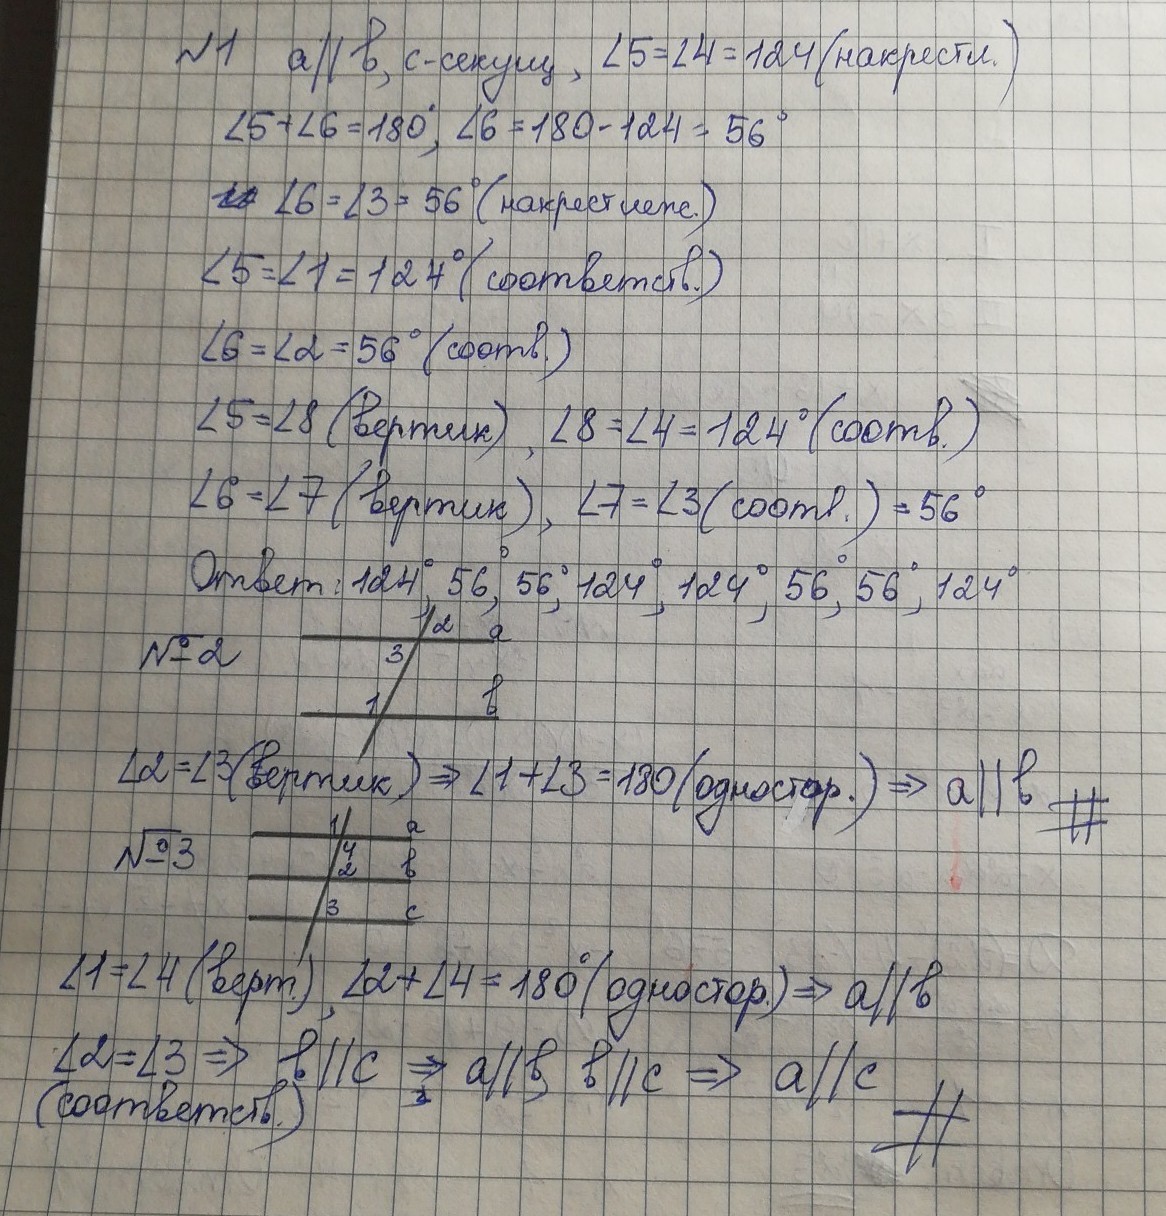 №1 a∥в, с-секущ, ∠5=∠4=124 (накрестл.)
∠5+∠6=180°, ∠6=180-124=56°
∠6=∠3=56° (накрестлеж.)
∠5=∠1=124° (соответств.)
∠6=∠2=56° (соотв.)
∠5=∠8 (вертик), ∠8=∠4=124° (соотв.)
∠6=∠7 (вертик), ∠7=∠3 (соотв.) =56°
Ответ: 124°, 56°, 56°, 124°, 124°, 56°, 56°, 124°
2 a
№2 3
1 в
∠2=∠3 (вертик) ⇒ ∠1+∠3=180 (одностор.) ⇒ a∥в #
1 a
№3 4
2 в
3 с
∠1=∠4 (верт.), ∠2+∠4=180° (одностор.) ⇒ a∥в
∠2=∠3 ⇒ в∥с ⇒ a∥в, в∥с ⇒ a∥с
(соответств.) #